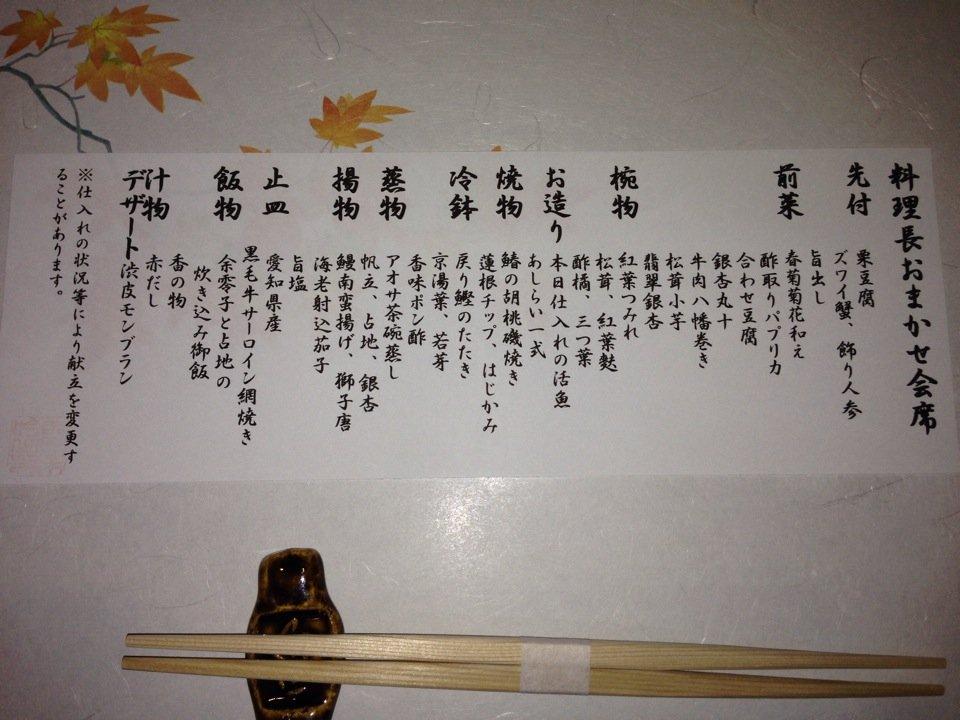 料理長おまかせ会席
先付
栗豆腐
ズワイ蟹、飾り人参
旨出し
前菜
春菊菊花和え
酢取りパプリカ
合わせ豆腐
銀杏丸十
牛肉八幡巻き
松茸小芋
翡翠銀杏
椀物
紅葉つみれ
松茸、紅葉麩
酢橘、三つ葉
お造り
本日仕入れの活魚
あしらい一式
焼物
鰆の胡桃磯焼き
蓮根チップ、はじかみ
冷鉢
戻り鰹のたたき
京湯葉、若芽
香味ポン酢
蒸物
アオサ茶碗蒸し
帆立、占地、銀杏
揚物
鰻南蛮揚げ、獅子唐
海老射込茄子
旨塩
止皿
愛知県産
黒毛牛サーロイン網焼き
飯物
余零子と占地の
炊き込み御飯
香の物
汁物
赤だし
デザート
渋皮モンブラン
※仕入れの状況等により献立を変更す
ることがあります。